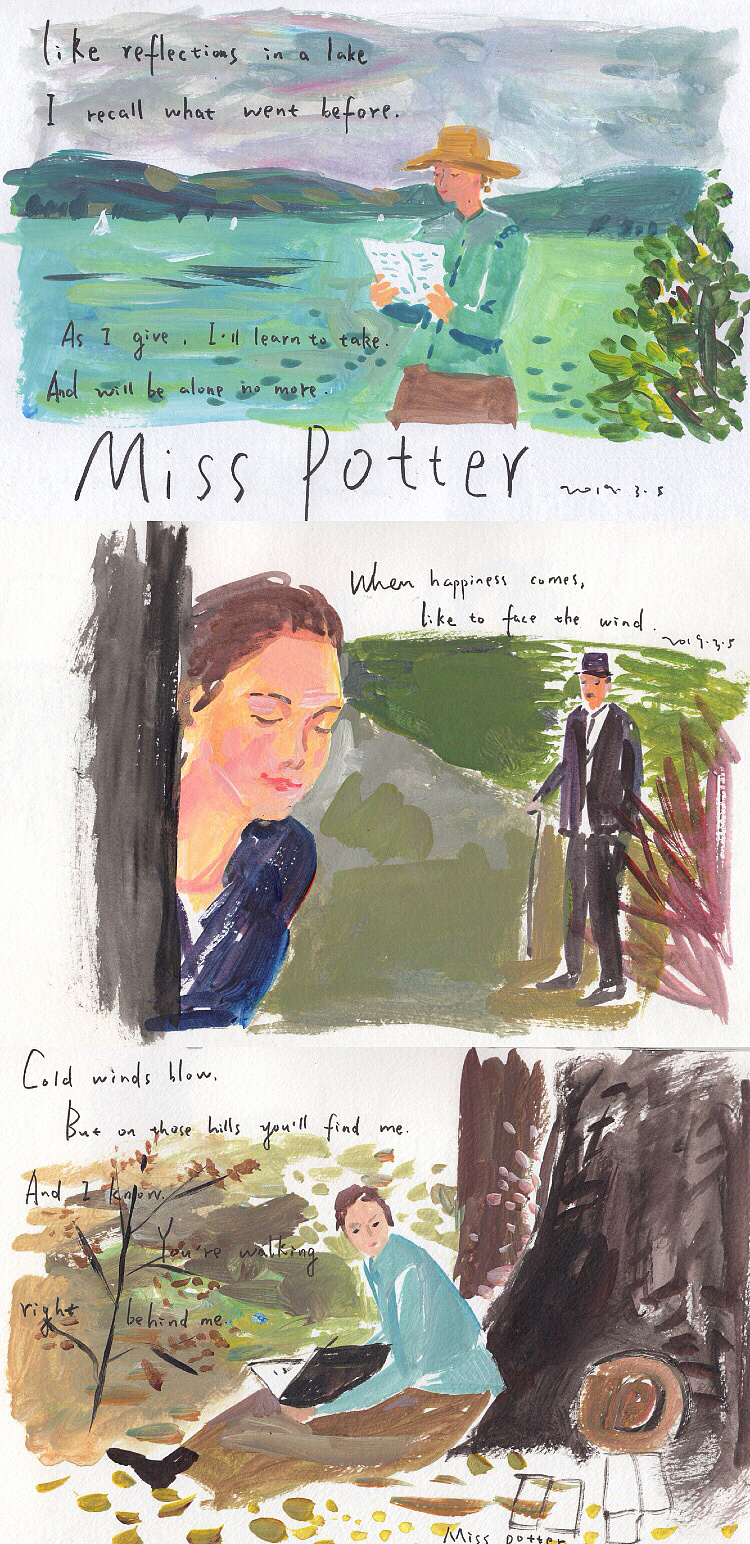 like reflections in a lake
I recall what went before.
As I give, I'll learn to take.
And will be alone no more.
Miss Potter 2019.3.5
When happiness comes,
like to face the wind.
2019.3.5
Cold winds blow.
But on those hills you'll find me.
And I know.
You're walking
right behind me.
Miss potter